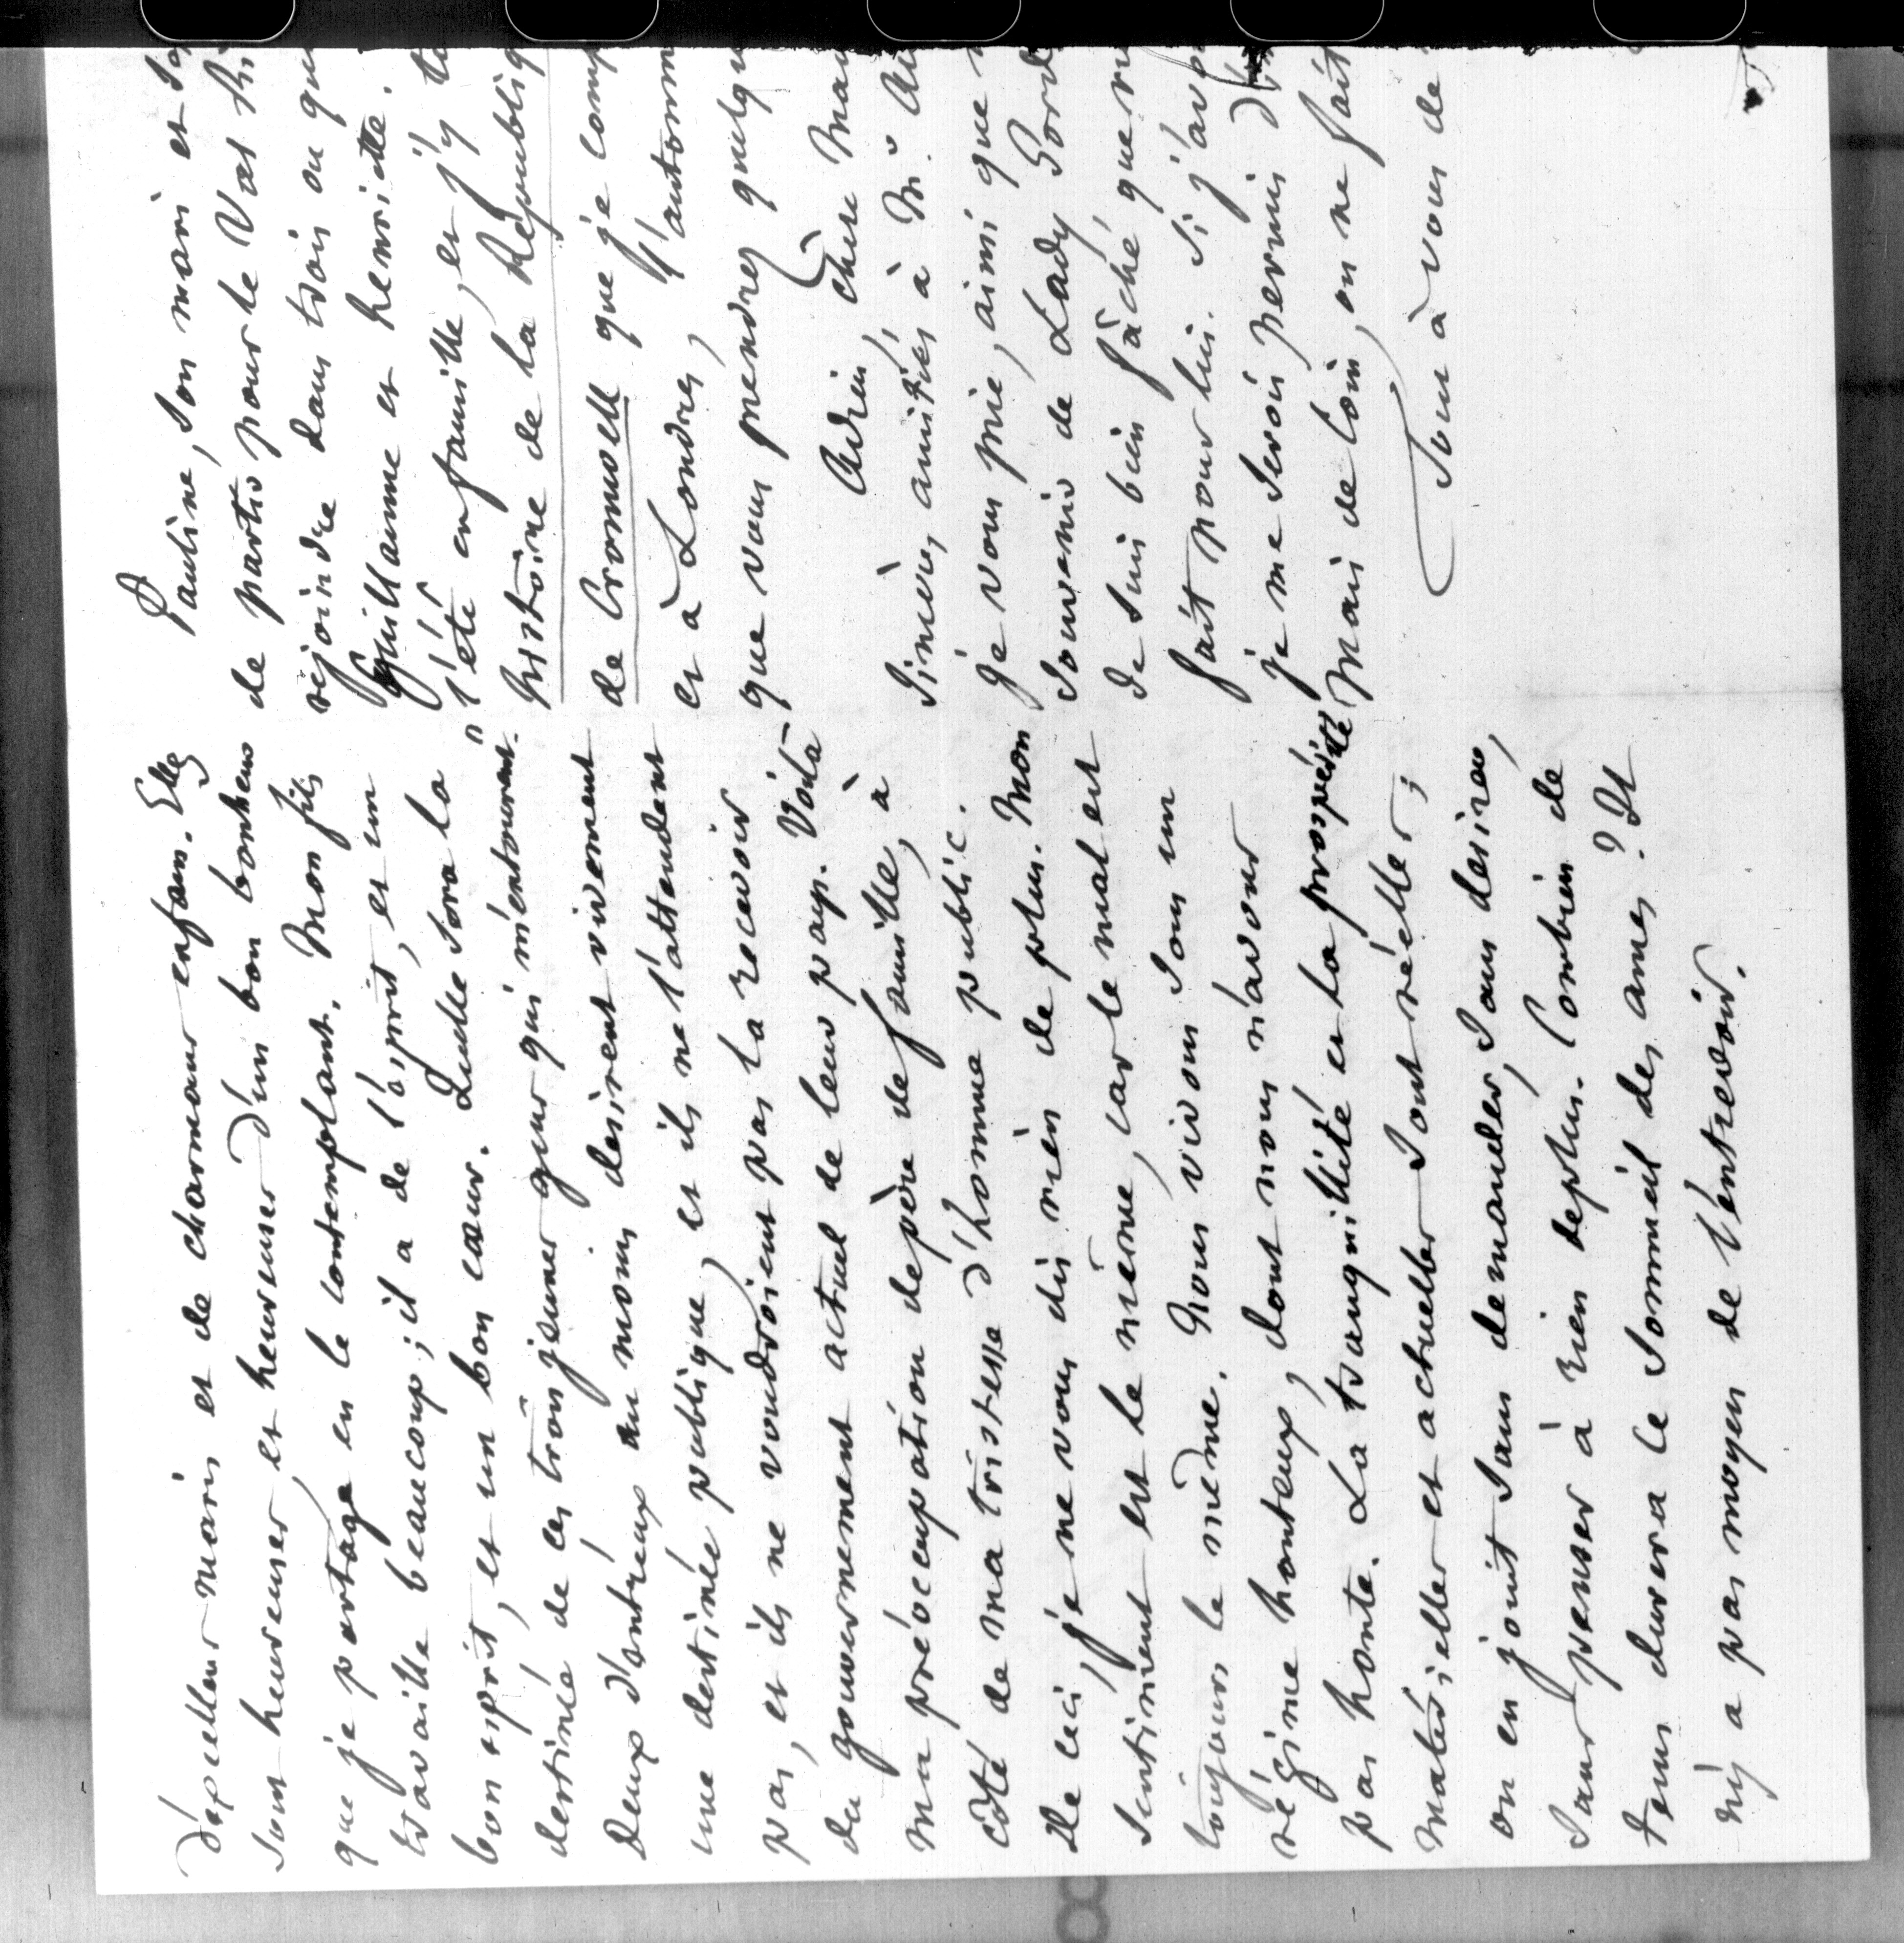 d'excellens maris et de charmans enfans. Elles
sont heureuses, et heureuses d'un bon bonheur
que je partage en le contemplant. Mon fils
travaille beaucoup ; il a de l'esprit, et un
bon esprit, et un bon cœur. Quelle sera la
destinée de ces trois jeunes gens qui m'entourent.
Deux d'entr'eux au moins desirent vivement
une destinée publique, et ils ne l'attendent
pas, et ils ne voudroient pas la recevoir
du gouvernement actuel de leur pays. Voilà
ma préoccupation de père de famille, à
côté de ma tristesse d'homme public.
De ceci, je ne vous dis rien de plus. Mon
sentiment est le même, car le mal est
toujours le même. Nous vivons sous un
régime honteux, dont nous n'avons
pas honte. La tranquillité et la prospérité
matérielles et actuelles sont réelles ;
on en jouit sans demander, sans desirer,
sans penser à rien de plus. Combien de
tems durera ce sommeil des ames ? Il
n'y a pas moyen de l'entrevoir.
Pauline, son mari et
de partir pour le Val
rejoindre dans trois ou
Guillaume et Henriette.
l'été en famille, et j'y
histoire de la Républiq
de Cromwell que je comp
et à Londres, l'autom
que vous prendrez quelqu
Adieu, chère
Sincères amitiés à Mr
je vous prie, ainsi que
souvenir de Lady
Je suis bien fâché que
fait pour lui. Si j'av
je me serois permis
Mais de loin, on ne fait
Tout à vous de